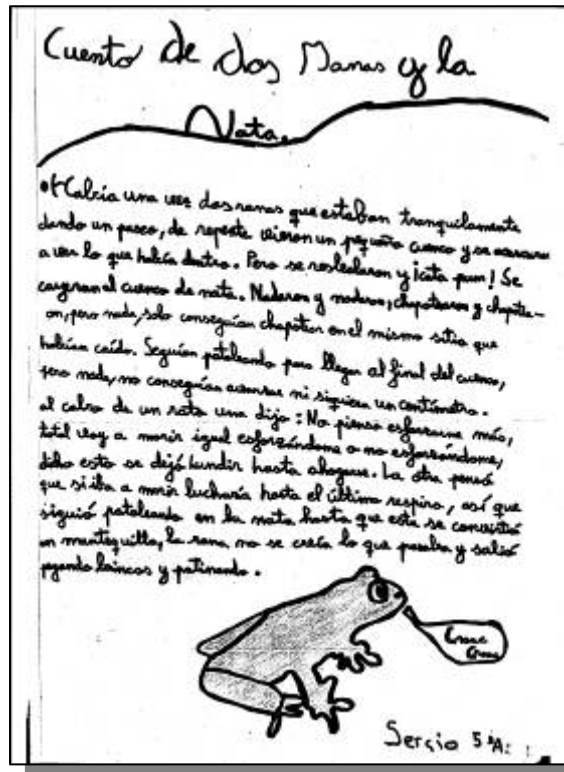 Cuento de dos Ranas y la
Nata.
Habría una vez dos ranas que estaban tranquilamente
dando un paseo, de repente vieron un pequeño cuenco y se acercaron
a ver lo que había dentro. Pero se resbalaron y ¡cata pum! Se
cayeron al cuenco de nata. Nadaron y nadaron, chapotearon y chapote-
on, pero nada, solo conseguían chapotear en el mismo sitio que
habían caído. Seguían pataleando para llegar al final del cuenco,
pero nada, no conseguían acercarse ni siquiera un centímetro.
al cabo de un rato una dijo: No pienso esforzarme más,
total voy a morir igual esforzándome o no esforzándome,
dicho esto se dejó hundir hasta ahogarse. La otra pensó
que si iba a morir lucharía hasta el último respiro, así que
siguió pataleando en la nata hasta que esta se convirtió
en mantequilla, la rana no se creía lo que pasaba y salió
pegando brincos y patinando.
Croac
Croac
Sergio 5ºA